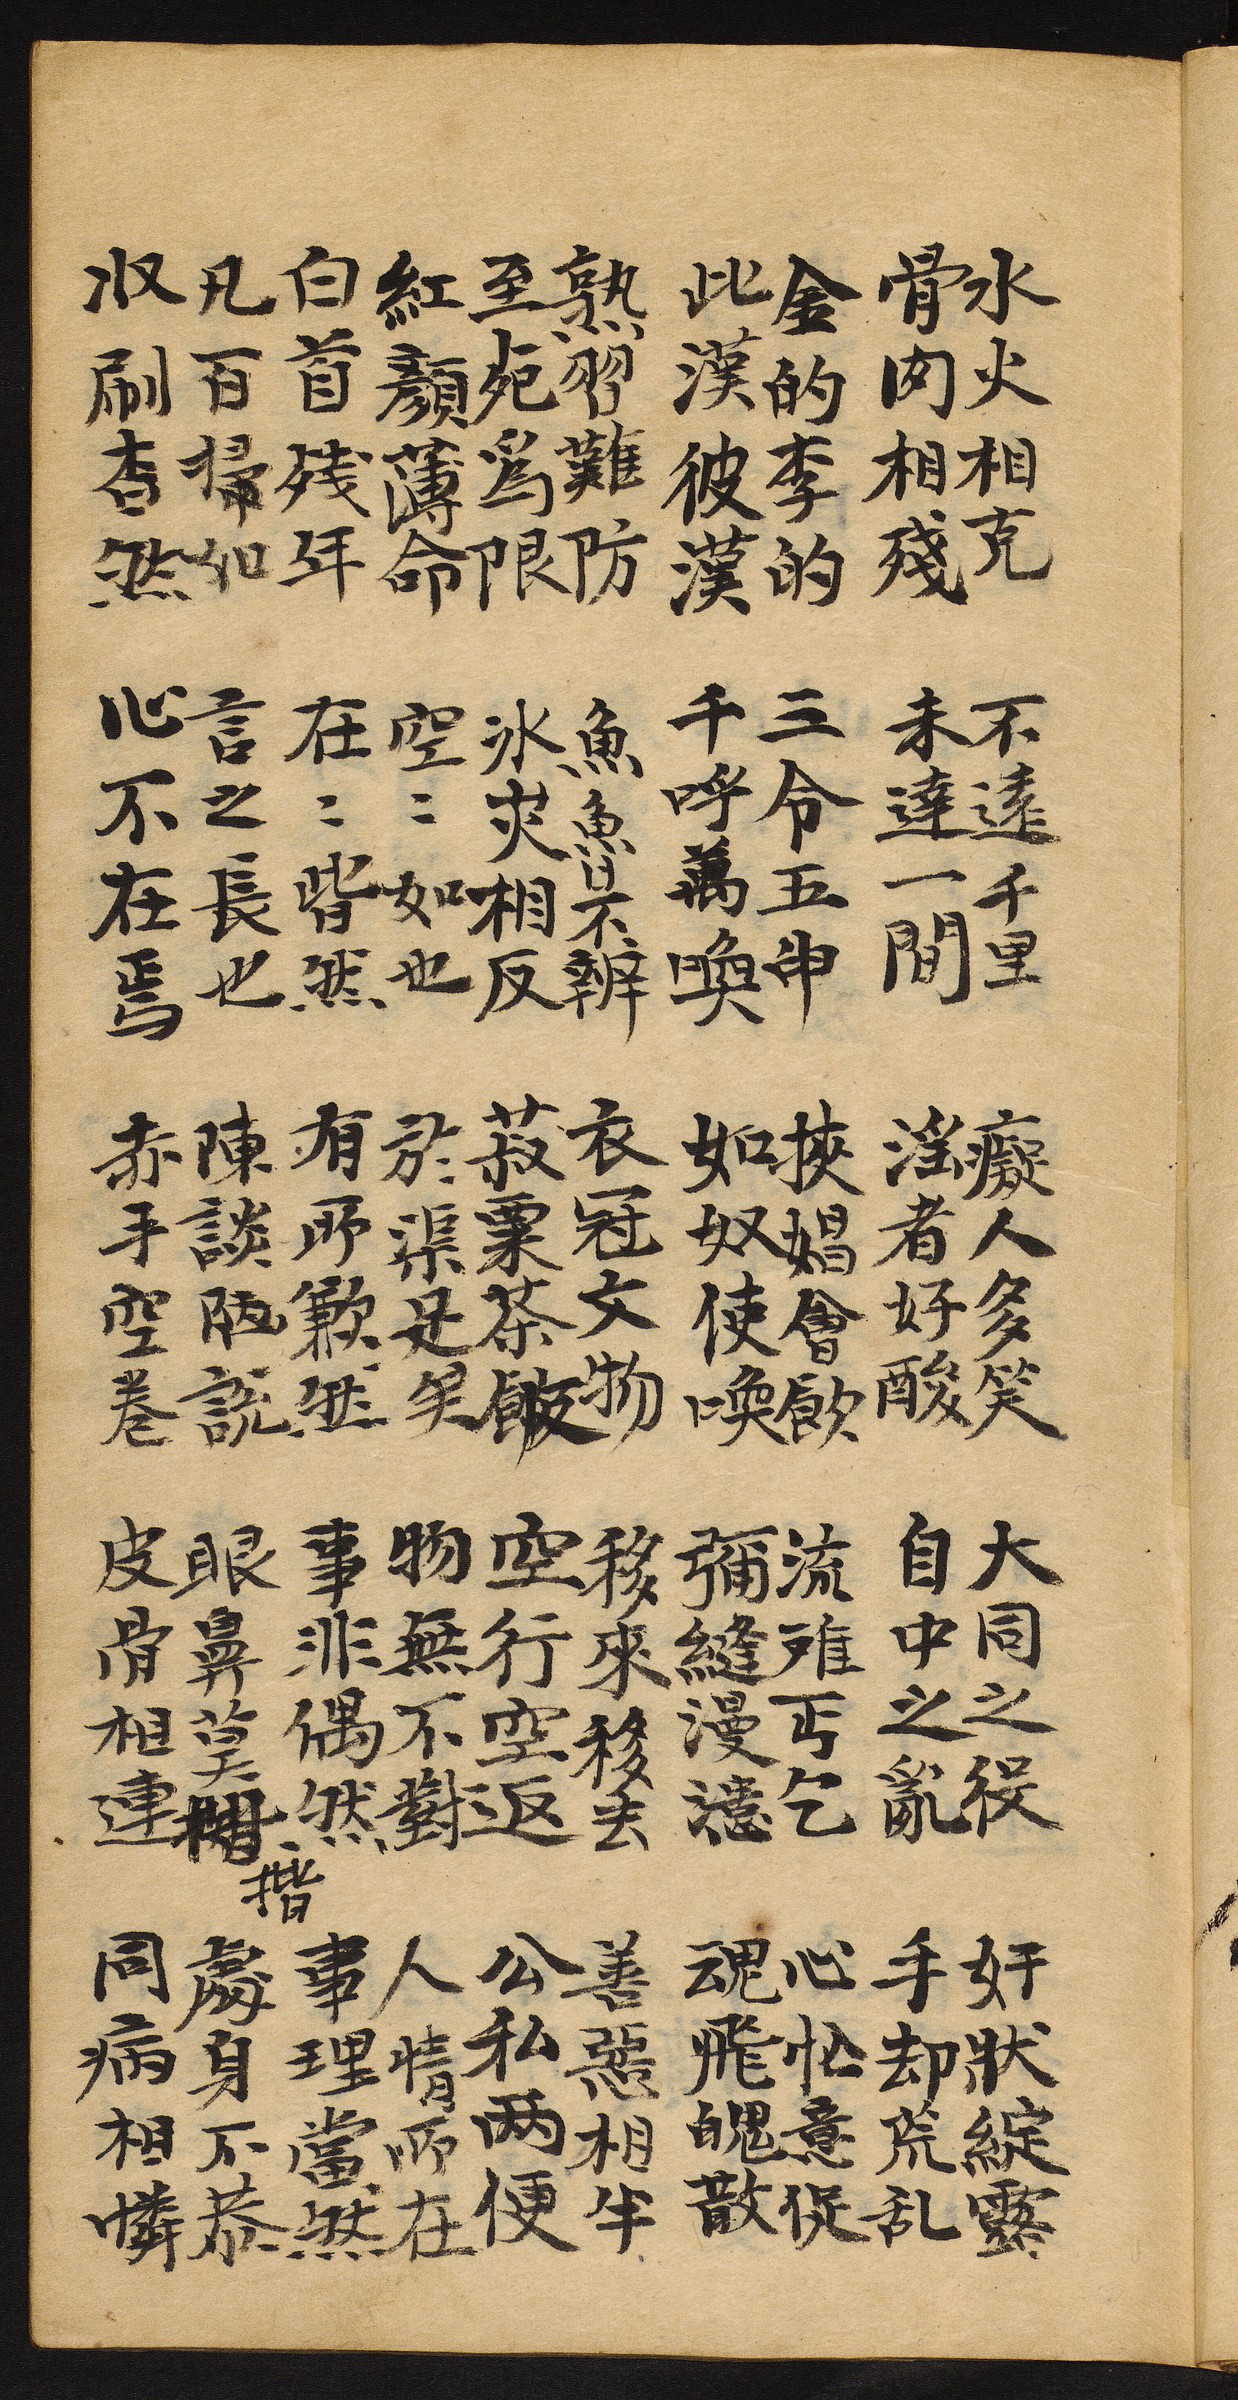 水火相克 不遠千里 癡人多笑 大同之役 奸狀綻露
骨肉相殘 未達一間 淫者好酸 自中之亂 手却荒乱
金的李的 三令五申 挾娼會飮 流離丐乞 心忙意促
此漢彼漢 千呼萬喚 如奴使喚 彌縫漫漶 魂飛魄散
熟習難防 魚魯不辨 衣冠文物 移來移去 善惡相半
至死爲限 氷炭相反 菽粟茶飯 空行空返 公私两便
紅顏薄命 空〻如也 於渠足矣 物無不對 人情所在
白首残年 在〻皆然 有所歉然 事非偶然 事理當然
凡百掃如 言之長也 陳談陋說 眼鼻莫開 處身不恭
揩
收刷杳然 心不在焉 赤手空巻 皮骨相連 同病相憐